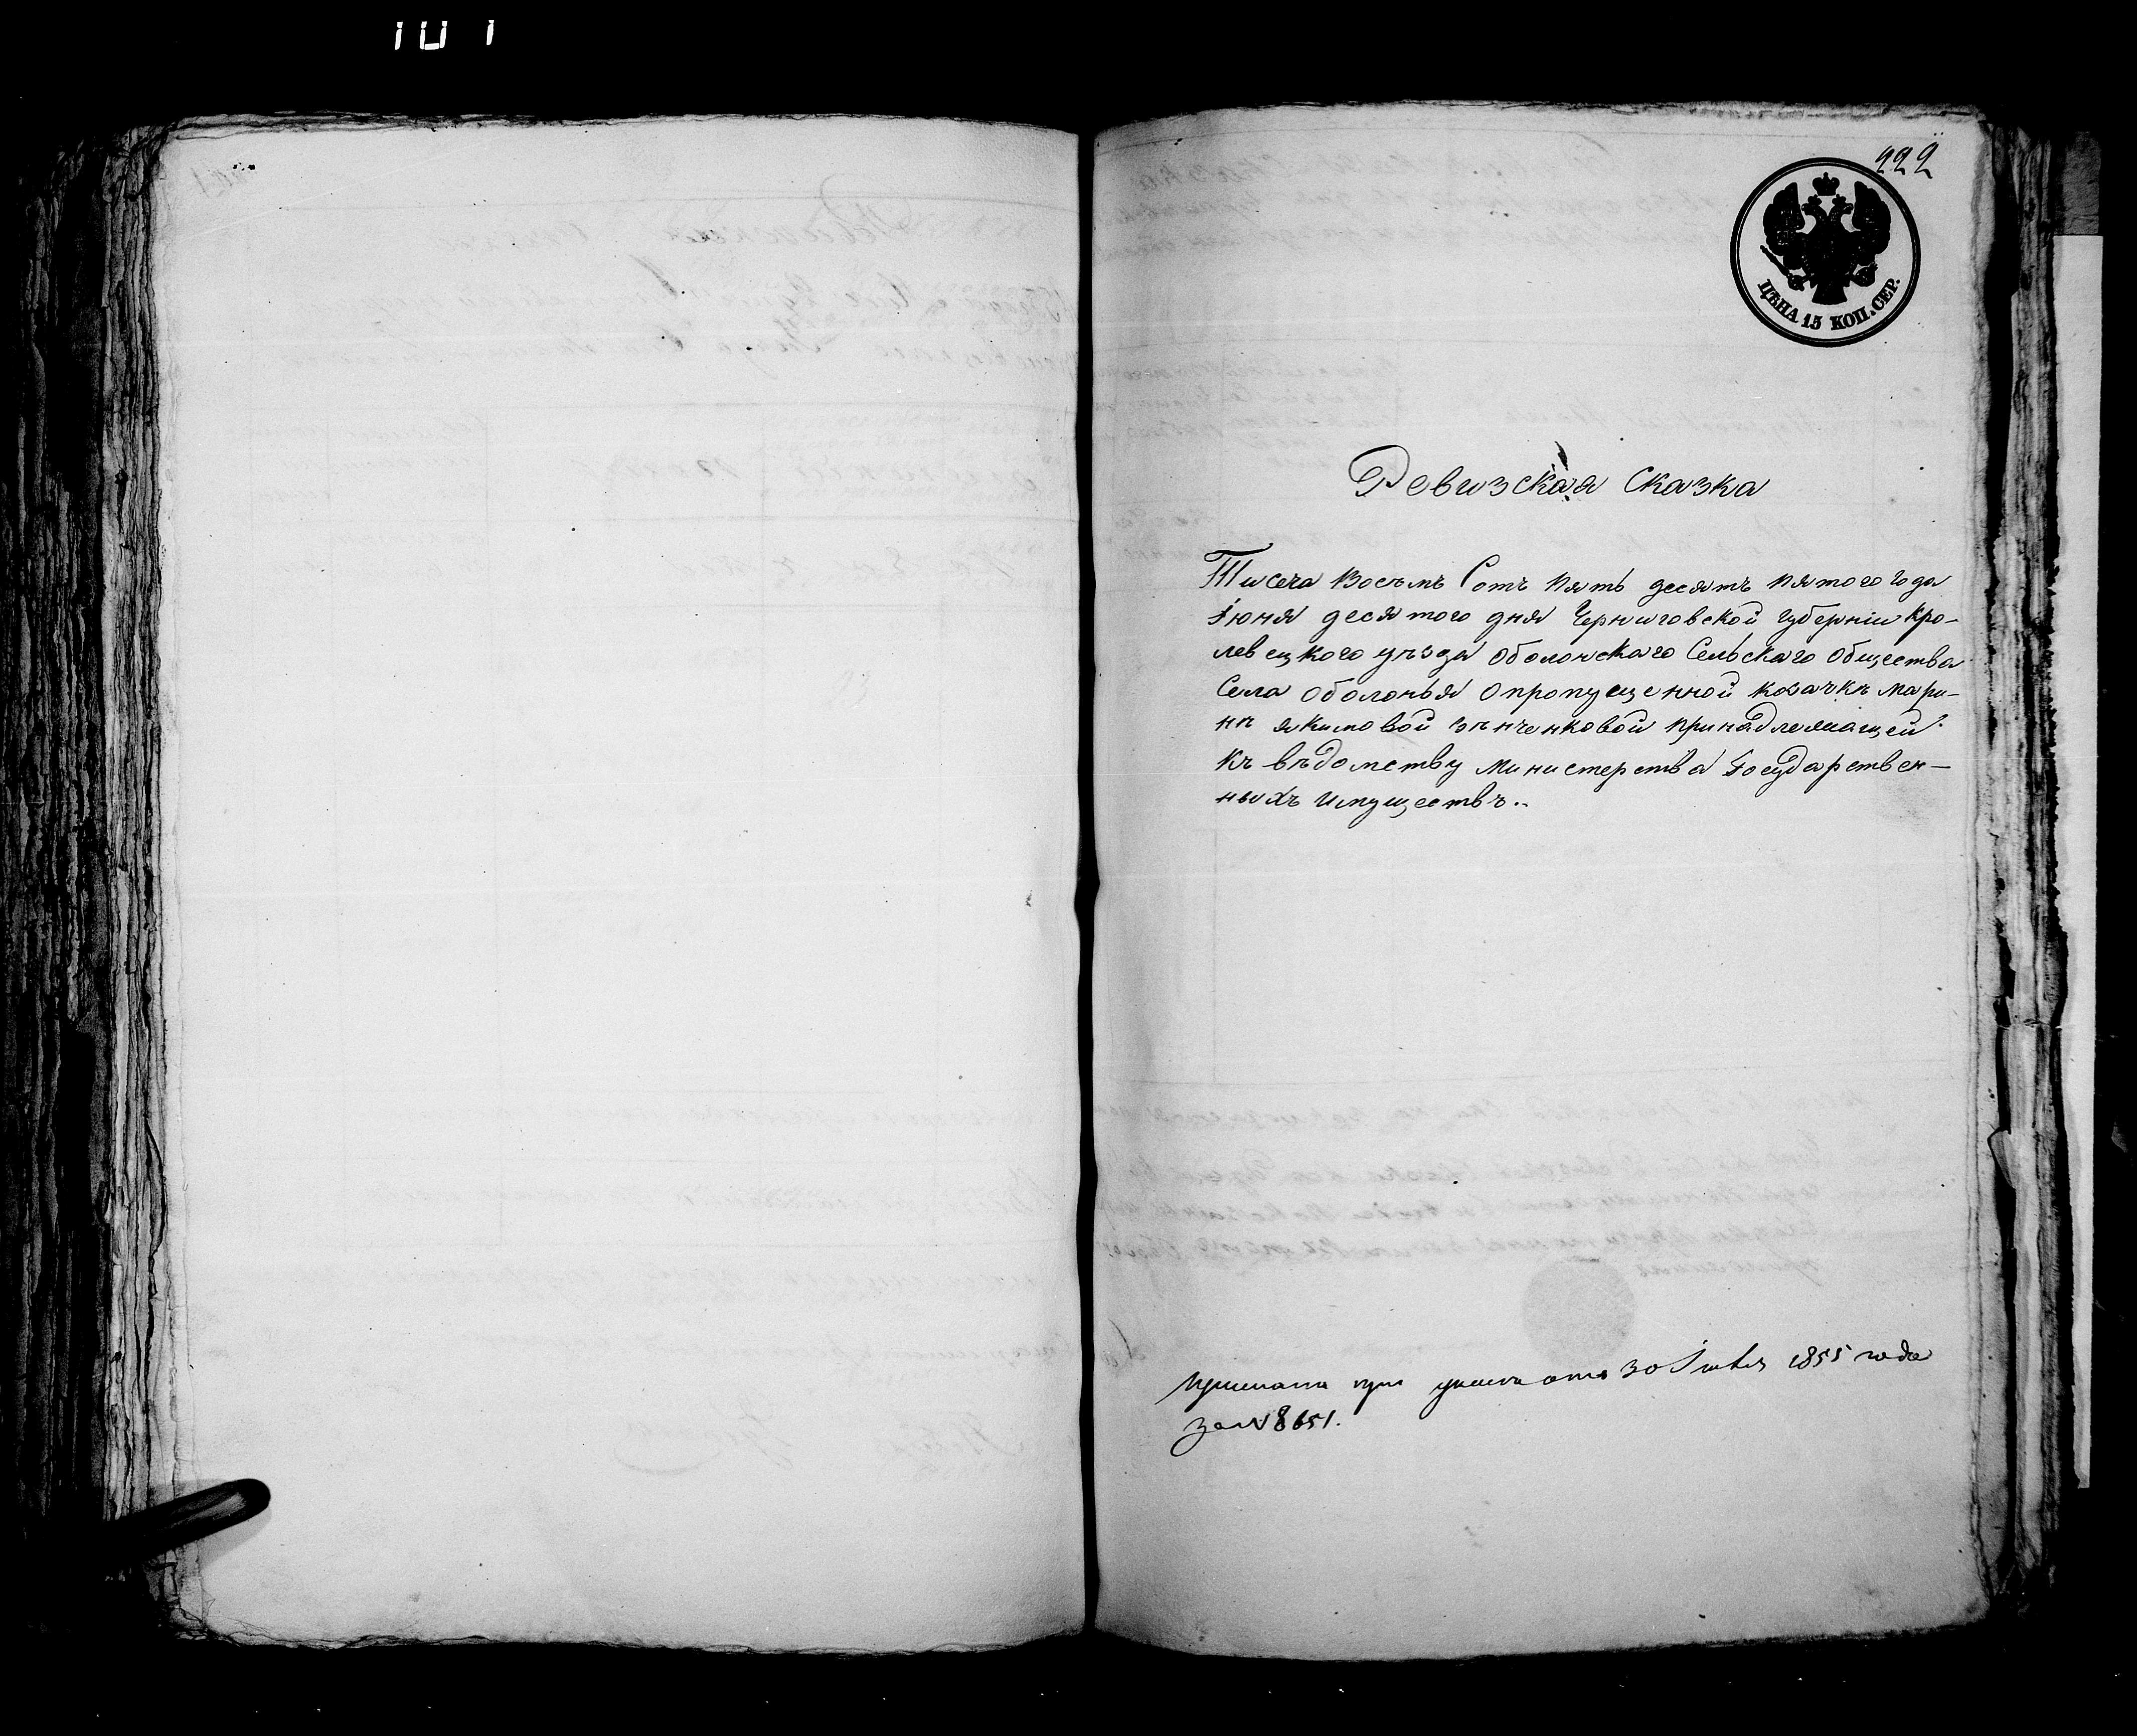 222
ЦѢНА 15 КОП. СЕР.
Ревизская Сказка
Тисеча Восемъ Сотъ пять десятъ пятого года
Іюня десятого дня Черниговской губерніи Кро-
левецкого уѣзда оболонскаго Сельскаго общества
Села оболонья о пропущенной козачкѣ Мари-
нѣ якимовой зѣнченковой принадлежащей
къ вѣдомству Министерства Государствен-
ныхъ Имуществъ..
при отъ 30 1855 года
за N 8651.